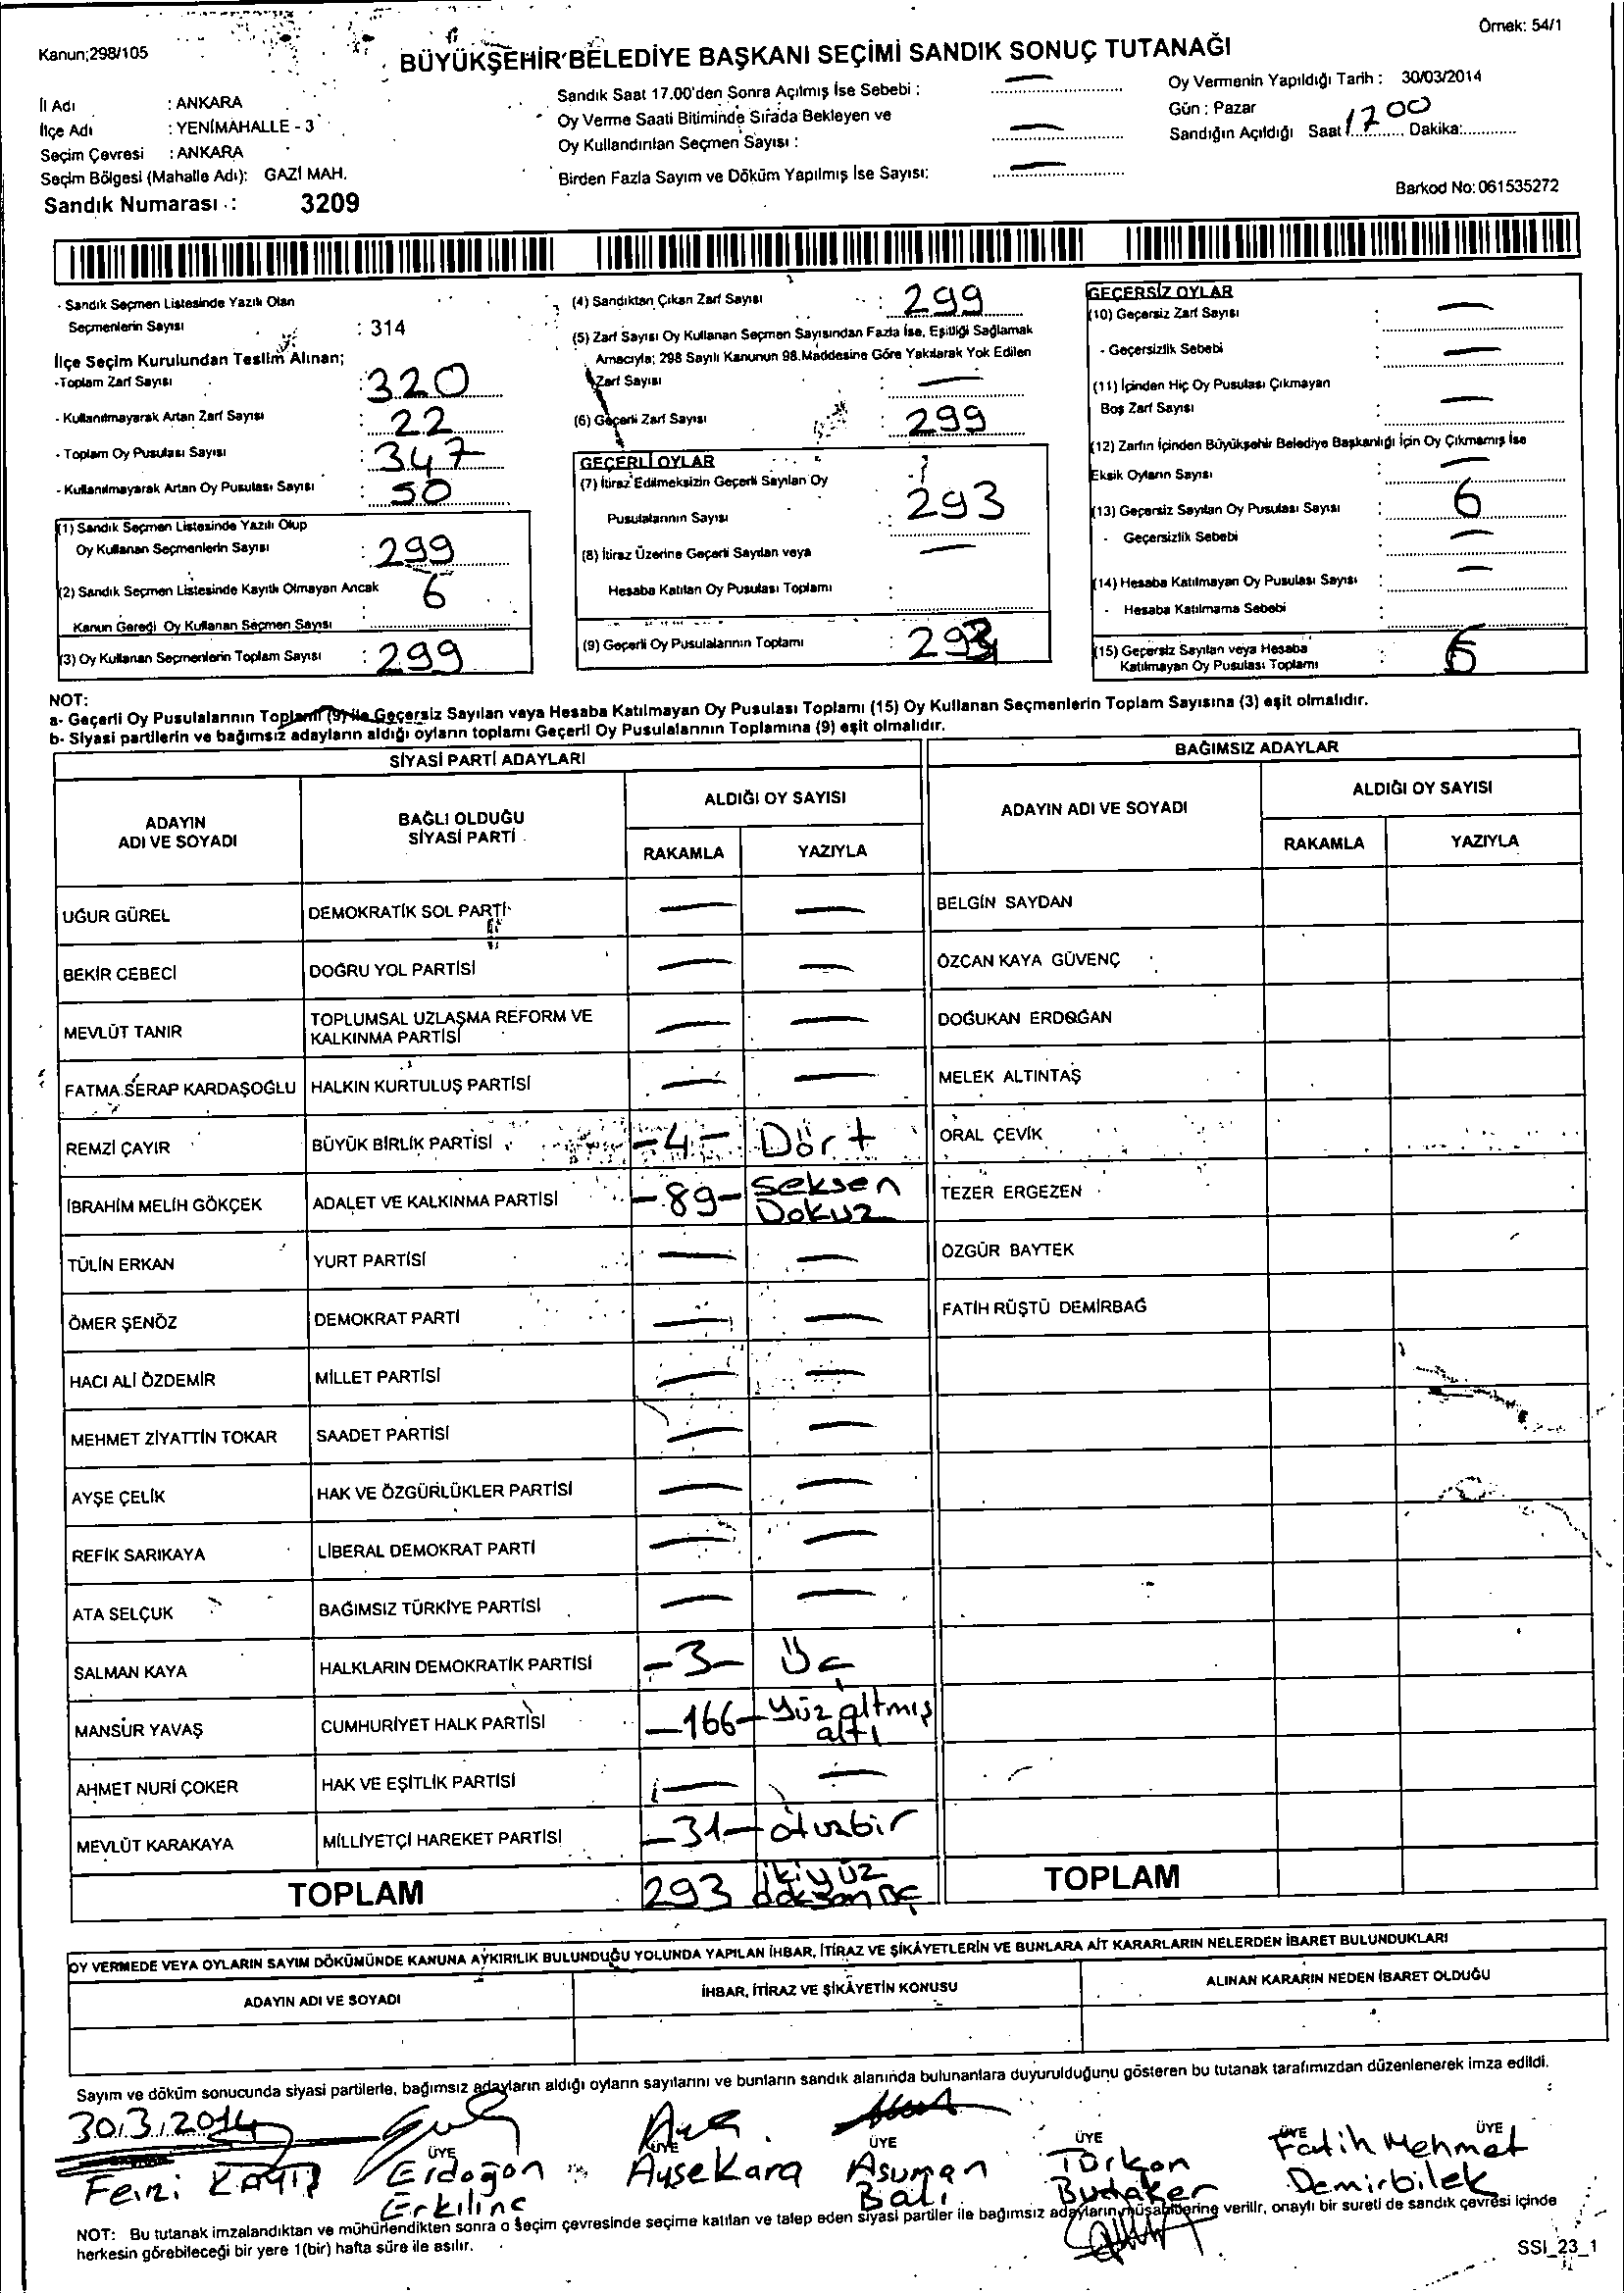 Örnek: 54/1
Kanun;298/105
BÜYÜKŞEHİR BELEDİYE BAŞKANI SEÇİMİ SANDIK SONUÇ TUTANAĞI
İl Adı : ANKARA
İlçe Adı : YENİMAHALLE - 3
Seçim Çevresi : ANKARA
Seçim Bölgesi (Mahalle Adı): GAZİ MAH.
Sandık Numarası : 3209
Sandık Saat 17.00'den Sonra Açılmış İse Sebebi : —
Oy Verme Saati Bitiminde Sırada Bekleyen ve
Oy Kullandırılan Seçmen Sayısı : —
Birden Fazla Sayım ve Döküm Yapılmış İse Sayısı: —
Oy Vermenin Yapıldığı Tarih : 30/03/2014
Gün : Pazar
Sandığın Açıldığı Saat 17 00 Dakika:............
Barkod No: 061535272
- Sandık Seçmen Listesinde Yazılı Olan
Seçmenlerin Sayısı : 314
İlçe Seçim Kurulundan Teslim Alınan;
-Toplam Zarf Sayısı : 320
- Kullanılmayarak Artan Zarf Sayısı : 22
- Toplam Oy Pusulası Sayısı : 347
- Kullanılmayarak Artan Oy Pusulası Sayısı : 50
(1) Sandık Seçmen Listesinde Yazılı Olup
Oy Kullanan Seçmenlerin Sayısı : 299
(2) Sandık Seçmen Listesinde Kayıtlı Olmayan Ancak
Kanun Gereği Oy Kullanan Seçmen Sayısı : 6
(3) Oy Kullanan Seçmenlerin Toplam Sayısı : 299
(4) Sandıktan Çıkan Zarf Sayısı : 299
(5) Zarf Sayısı Oy Kullanan Seçmen Sayısından Fazla İse, Eşitliği Sağlamak
Amacıyla; 298 Sayılı Kanunun 98.Maddesine Göre Yakılarak Yok Edilen
Zarf Sayısı : —
(6) Geçerli Zarf Sayısı : 299
GEÇERLİ OYLAR
(7) İtiraz Edilmeksizin Geçerli Sayılan Oy
Pusulalarının Sayısı : 293
(8) İtiraz Üzerine Geçerli Sayılan veya
Hesaba Katılan Oy Pusulası Toplamı : —
(9) Geçerli Oy Pusulalarının Toplamı : 293
GEÇERSİZ OYLAR
(10) Geçersiz Zarf Sayısı : —
- Geçersizlik Sebebi : —
(11) İçinden Hiç Oy Pusulası Çıkmayan
Boş Zarf Sayısı : —
(12) Zarfın İçinden Büyükşehir Belediye Başkanlığı İçin Oy Çıkmamış İse
Eksik Oyların Sayısı : —
(13) Geçersiz Sayılan Oy Pusulası Sayısı : 6
- Geçersizlik Sebebi : —
(14) Hesaba Katılmayan Oy Pusulası Sayısı : —
- Hesaba Katılmama Sebebi :
(15) Geçersiz Sayılan veya Hesaba
Katılmayan Oy Pusulası Toplamı : 6
NOT:
a- Geçerli Oy Pusulalarının Toplamı (9) ile Geçersiz Sayılan veya Hesaba Katılmayan Oy Pusulası Toplamı (15) Oy Kullanan Seçmenlerin Toplam Sayısına (3) eşit olmalıdır.
b- Siyasi partilerin ve bağımsız adayların aldığı oyların toplamı Geçerli Oy Pusulalarının Toplamına (9) eşit olmalıdır.
SİYASİ PARTİ ADAYLARI
ADAYIN ADI VE SOYADI
BAĞLI OLDUĞU SİYASİ PARTİ
ALDIĞI OY SAYISI
RAKAMLA YAZIYLA
UĞUR GÜREL DEMOKRATİK SOL PARTİ — —
BEKİR CEBECİ DOĞRU YOL PARTİSİ — —
MEVLÜT TANIR TOPLUMSAL UZLAŞMA REFORM VE KALKINMA PARTİSİ — —
FATMA SERAP KARDAŞOĞLU HALKIN KURTULUŞ PARTİSİ — —
REMZİ ÇAYIR BÜYÜK BİRLİK PARTİSİ -4- Dört
İBRAHİM MELİH GÖKÇEK ADALET VE KALKINMA PARTİSİ -89- Seksen Dokuz
TÜLİN ERKAN YURT PARTİSİ — —
ÖMER ŞENÖZ DEMOKRAT PARTİ — —
HACI ALİ ÖZDEMİR MİLLET PARTİSİ — —
MEHMET ZİYATTİN TOKAR SAADET PARTİSİ — —
AYŞE ÇELİK HAK VE ÖZGÜRLÜKLER PARTİSİ — —
REFİK SARIKAYA LİBERAL DEMOKRAT PARTİ — —
ATA SELÇUK BAĞIMSIZ TÜRKİYE PARTİSİ — —
SALMAN KAYA HALKLARIN DEMOKRATİK PARTİSİ -3- Üç
MANSUR YAVAŞ CUMHURİYET HALK PARTİSİ -166- Yüz altmış altı
AHMET NURİ ÇOKER HAK VE EŞİTLİK PARTİSİ — —
MEVLÜT KARAKAYA MİLLİYETÇİ HAREKET PARTİSİ -31- otuzbir
TOPLAM 293 ikiyüz doksan üç
BAĞIMSIZ ADAYLAR
ADAYIN ADI VE SOYADI
ALDIĞI OY SAYISI
RAKAMLA YAZIYLA
BELGİN SAYDAN
ÖZCAN KAYA GÜVENÇ
DOĞUKAN ERDOĞAN
MELEK ALTINTAŞ
ORAL ÇEVİK
TEZER ERGEZEN
ÖZGÜR BAYTEK
FATİH RÜŞTÜ DEMİRBAĞ
TOPLAM
OY VERMEDE VEYA OYLARIN SAYIM DÖKÜMÜNDE KANUNA AYKIRILIK BULUNDUĞU YOLUNDA YAPILAN İHBAR, İTİRAZ VE ŞİKÂYETLERİN VE BUNLARA AİT KARARLARIN NELERDEN İBARET BULUNDUKLARI
ADAYIN ADI VE SOYADI
İHBAR, İTİRAZ VE ŞİKÂYETİN KONUSU
ALINAN KARARIN NEDEN İBARET OLDUĞU
Sayım ve döküm sonucunda siyasi partilerle, bağımsız adayların aldığı oyların sayılarını ve bunların sandık alanında bulunanlara duyurulduğunu gösteren bu tutanak tarafımızdan düzenlenerek imza edildi.
30.3.2014
ÜYE ÜYE ÜYE ÜYE ÜYE ÜYE
Erdoğan Erkılınç
Ayşe Kara
Asuman Balı
Türkan
Fatih Mehmet Demirbilek
NOT: Bu tutanak imzalandıktan ve mühürlendikten sonra o seçim çevresinde seçime katılan ve talep eden siyasi partiler ile bağımsız adayların müşahitlerine verilir, onaylı bir sureti de sandık çevresi içinde
herkesin görebileceği bir yere 1(bir) hafta süre ile asılır.
SSI_23_1